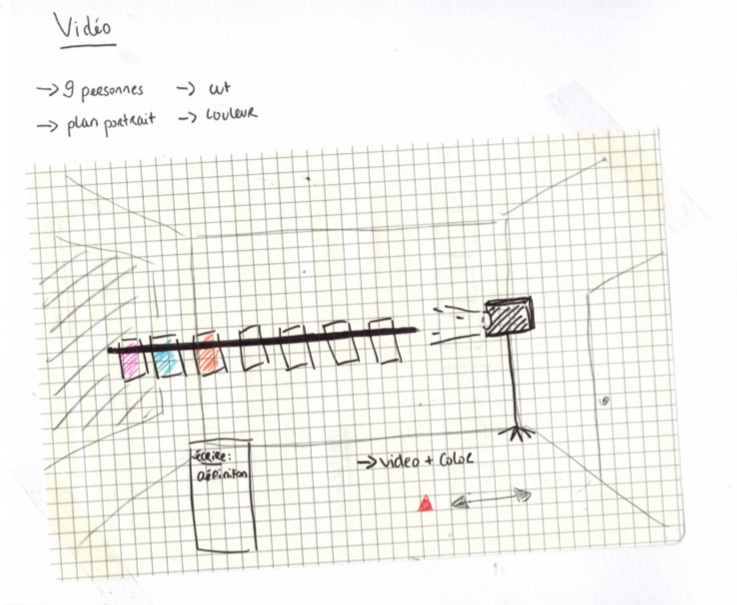 Vidéo
→ 9 personnes → cut
→ plan portrait → couleur
écrire:
Définition
→ video + color